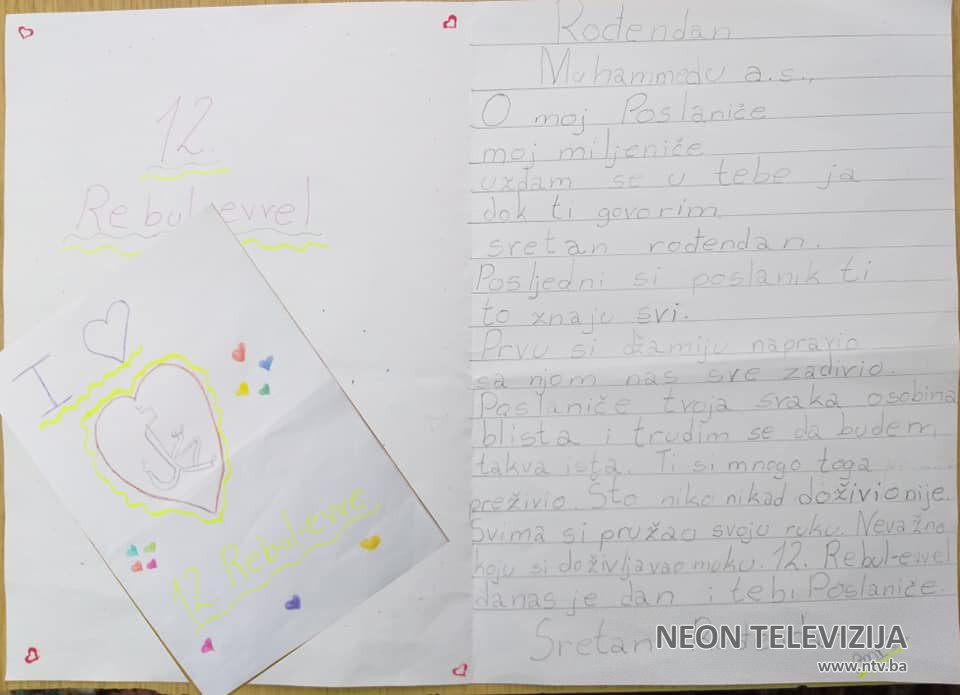 12.
Rebul-evvel
I
12 Rebul-evve
Rođendan
Muhammedu a.s.,
O moj Poslaniče
moj miljeniče
uzdam se u tebe ja
dok ti govorim
sretan rođendan.
Posljedni si poslanik ti
to znaju svi.
Prvu si džamiju napravio
sa njom nas sve zadivio.
Poslaniče tvoja svaka osobina
blista i trudim se da budem
takva ista. Ti si mnogo toga
preživio. Što niko nikad doživio nije.
Svima si pružao svoju ruku. Nevažno
koju si doživljavao muku. 12. Rebul-evvel
danas je dan i tebi Poslaniče.
Sretan
NEON TELEVIZIJA
www.ntv.ba